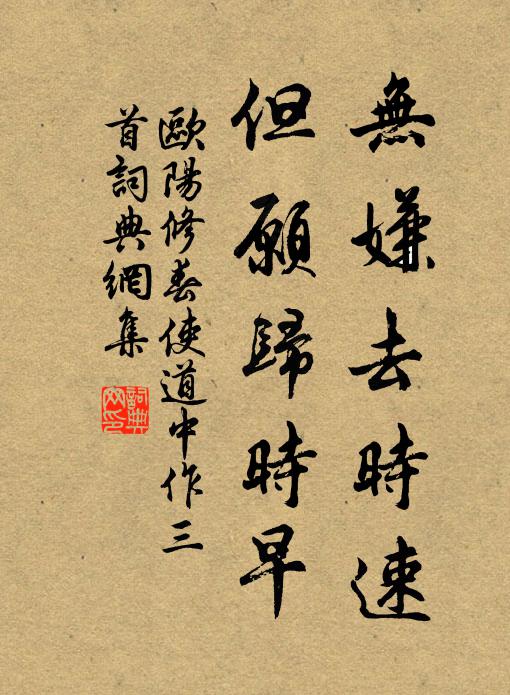 無嫌去時速
但願歸時早
歐陽修奉使道中作三
首詞典網集
詞典
网印